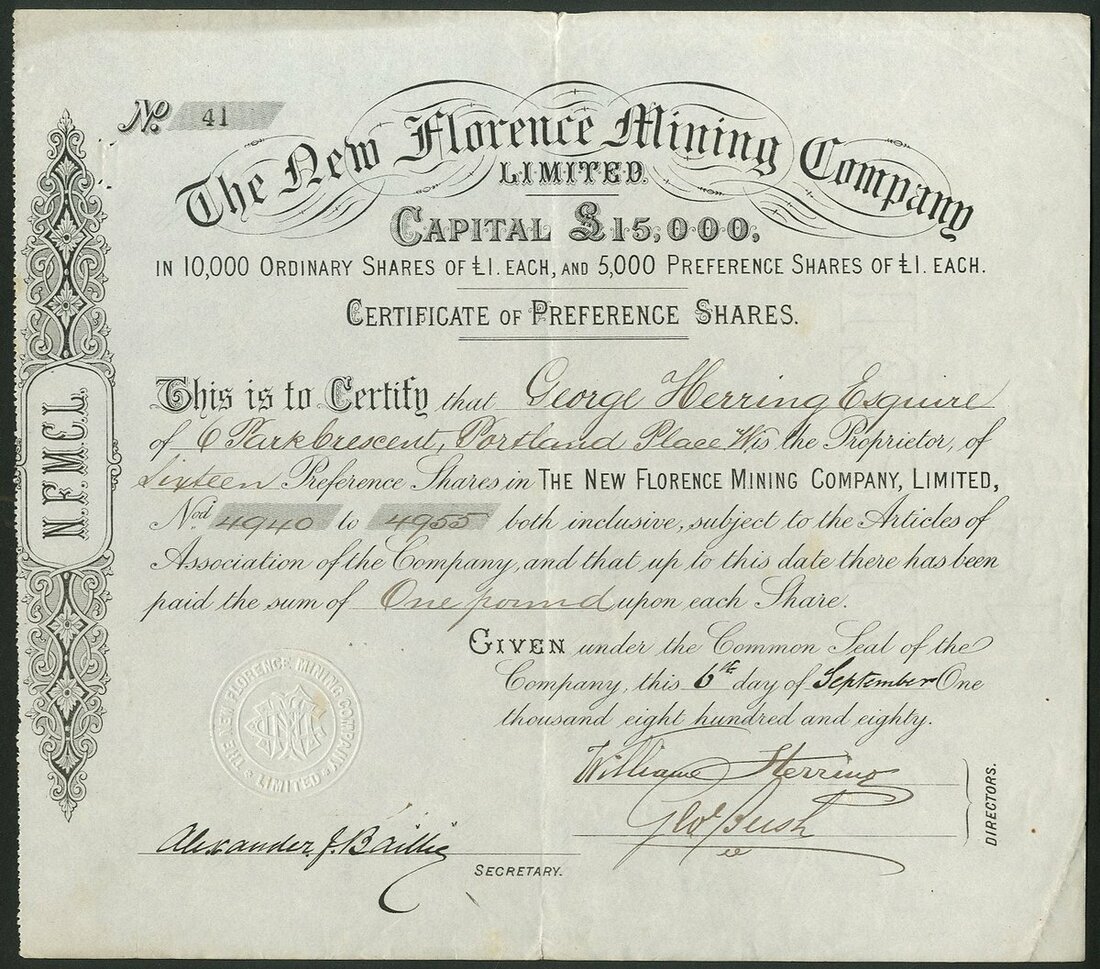 No. 41
The New Florence Mining Company
LIMITED.
CAPITAL £15,000,
IN 10,000 ORDINARY SHARES OF £1. EACH, AND 5,000 PREFERENCE SHARES OF £1. EACH.
CERTIFICATE OF PREFERENCE SHARES.
This is to Certify that George Herring Esquire
of 6 Park Crescent, Portland Place W is the Proprietor, of
Sixteen Preference Shares in THE NEW FLORENCE MINING COMPANY, LIMITED,
Nod 4940 to 4955 both inclusive, subject to the Articles of
Association of the Company, and that up to this date there has been
paid the sum of One pound upon each Share.
GIVEN under the Common Seal of the
Company, this 6th day of September One
thousand eight hundred and eighty.
William Herring
Geo Bush
DIRECTORS.
Alexander J. Baillie
SECRETARY.
N.F.M.C.L.
THE NEW FLORENCE MINING COMPANY
LIMITED